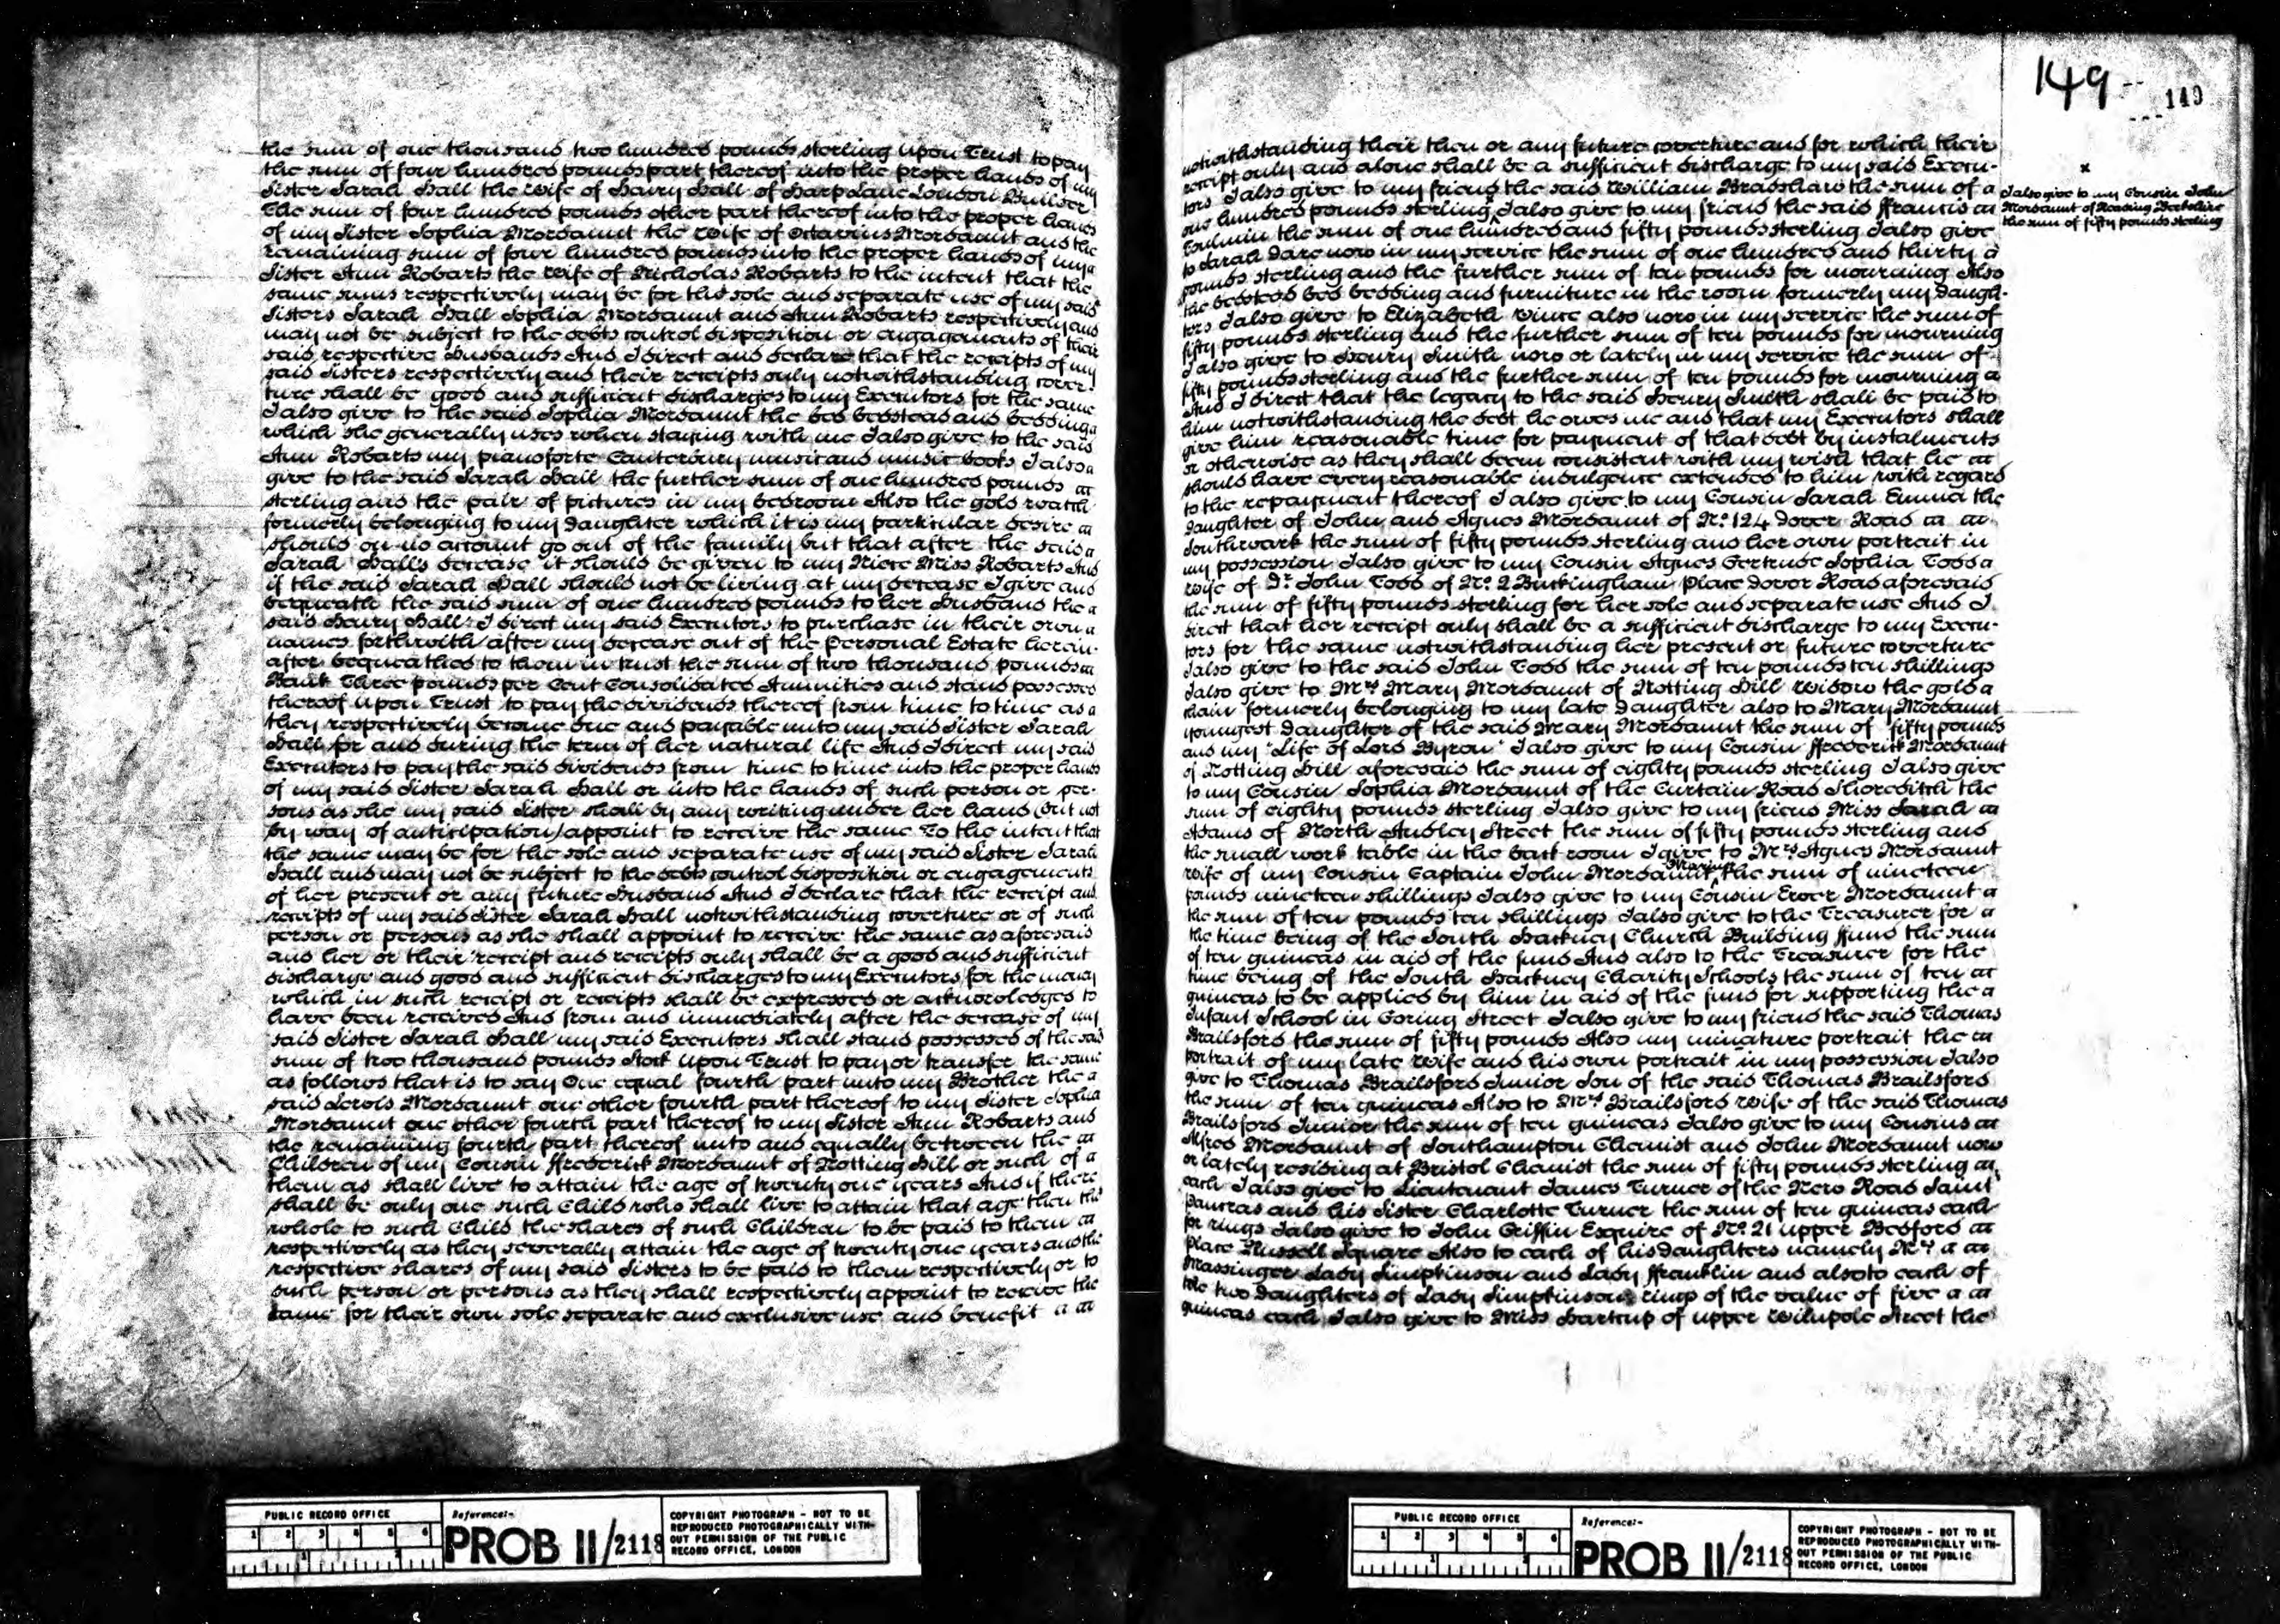 the sum of one thousand two hundred pounds sterling Upon Trust to pay
the sum of four hundred pounds part thereof into the proper hands of my
Sister Sarah Hall the wife of Henry Hall of Harp Lane London Builder
The sum of four hundred pounds other part thereof into the proper hands
of my Sister Sophia Mordaunt the wife of Octavius Mordaunt and the
remaining sum of four hundred pounds into the proper hands of my
Sister Ann Robarts the wife of Nicholas Robarts to the intent that the
same sums respectively may be for the sole and separate use of my said
Sisters Sarah Hall Sophia Mordaunt and Ann Robarts respectively and
may not be subject to the debts control disposition or engagements of their
said respective Husbands And I direct and declare that the receipts of my
said Sisters respectively and their receipts only notwithstanding cover-
ture shall be good and sufficient discharges to my Executors for the same
I also give to the said Sophia Mordaunt the bed bedstead and bedding
which she generally uses when staying with me I also give to the said
Ann Robarts my pianoforte Canterbury music and music books I also
give to the said Sarah Hall the further sum of one hundred pounds
sterling and the pair of pictures in my bedroom Also the gold watch
formerly belonging to my daughter which it is my particular desire
should on no account go out of the family but that after the said
Sarah Hall's decease it should be given to my Niece Miss Robarts And
if the said Sarah Hall should not be living at my decease I give and
bequeath the said sum of one hundred pounds to her Husband the
said Henry Hall I direct my said Executors to purchase in their own
names forthwith after my decease out of the Personal Estate herein-
after bequeathed to them in trust the sum of two thousand pounds
Bank Three pounds per Cent Consolidated Annuities and stand possessed
thereof Upon Trust to pay the dividends thereof from time to time as
they respectively become due and payable unto my said Sister Sarah
Hall for and during the term of her natural life And I direct my said
Executors to pay the said dividends from time to time into the proper hands
of my said Sister Sarah Hall or into the hands of such person or per-
sons as she my said Sister shall by any writing under her hand (but not
by way of anticipation) appoint to receive the same To the intent that
the same may be for the sole and separate use of my said Sister Sarah
Hall and may not be subject to the debts control disposition or engagements
of her present or any future Husband And I declare that the receipt and
receipts of my said Sister Sarah Hall notwithstanding coverture or of such
person or persons as she shall appoint to receive the same as aforesaid
and her or their receipt and receipts only shall be a good and sufficient
discharge and good and sufficient discharges to my Executors for the money
which in such receipt or receipts shall be expressed or acknowledged to
have been received And from and immediately after the decease of my
said Sister Sarah Hall my said Executors shall stand possessed of the said
sum of two thousand pounds Stock Upon Trust to pay or transfer the same
as follows that is to say One equal fourth part unto my Brother the
said Lewis Mordaunt one other fourth part thereof to my Sister Sophia
Mordaunt one other fourth part thereof to my Sister Ann Robarts and
the remaining fourth part thereof unto and equally between the
Children of my Cousin ffrederick Mordaunt of Notting Hill or such of
them as shall live to attain the age of twenty one years And if there
shall be only one such Child who shall live to attain that age then the
whole to such Child the shares of such Children to be paid to them
respectively as they severally attain the age of twenty one years and the
respective shares of my said Sisters to be paid to them respectively or to
such person or persons as they shall respectively appoint to receive the
same for their own sole separate and exclusive use and benefit
149
149
notwithstanding their then or any future coverture and for which their
receipt only and alone shall be a sufficient discharge to my said Execu-
tors I also give to my friend the said William Bradshaw the sum of
one hundred pounds sterling x I also give to my friend the said ffrancis
Toulmin the sum of one hundred and fifty pounds sterling I also give
to Sarah Dare now in my service the sum of one hundred and thirty
pounds sterling and the further sum of ten pounds for mourning Also
the bedstead bed bedding and furniture in the room formerly my daugh-
ters I also give to Elizabeth Vince also now in my service the sum of
fifty pounds sterling and the further sum of ten pounds for mourning
I also give to Henry Smith now or lately in my service the sum of
fifty pounds sterling and the further sum of ten pounds for mourning
And I direct that the legacy to the said Henry Smith shall be paid to
him notwithstanding the debt he owes me and that my Executors shall
give him reasonable time for payment of that debt by instalments
or otherwise as they shall deem consistent with my wish that he
should have every reasonable indulgence extended to him with regard
to the repayment thereof I also give to my Cousin Sarah Emma the
daughter of John and Agnes Mordaunt of No. 124 Dover Road
Southwark the sum of fifty pounds sterling and her own portrait in
my possession I also give to my Cousin Agnes Gertrude Sophia Todd
wife of Dr. John Todd of No. 2 Buckingham Place Dover Road aforesaid
the sum of fifty pounds sterling for her sole and separate use And I
direct that her receipt only shall be a sufficient discharge to my Execu-
tors for the same notwithstanding her present or future coverture
I also give to the said John Todd the sum of ten pounds ten shillings
I also give to Mrs Mary Mordaunt of Notting Hill Widow the gold
chain formerly belonging to my late daughter also to Mary Mordaunt
youngest daughter of the said Mary Mordaunt the sum of fifty pounds
and my "Life of Lord Byron" I also give to my Cousin ffrederick Mordaunt
of Notting Hill aforesaid the sum of eighty pounds sterling I also give
to my Cousin Sophia Mordaunt of the Curtain Road Shoreditch the
sum of eighty pounds sterling I also give to my friend Miss Sarah
Adams of North Audley Street the sum of fifty pounds sterling and
the small work table in the back room I give to Mrs Agnes Mordaunt
wife of my Cousin Captain John Mordaunt the sum of nineteen
pounds nineteen shillings I also give to my Cousin Mordaunt
the sum of ten pounds ten shillings I also give to the Treasurer for
the time being of the South Hackney Church Building ffund the sum
of ten guineas in aid of the fund And also to the Treasurer for the
time being of the South Hackney Charity Schools the sum of ten
guineas to be applied by him in aid of the fund for supporting the
Infant School in Goring Street I also give to my friend the said Thomas
Brailsford the sum of fifty pounds Also my minature portrait the
portrait of my late wife and his own portrait in my possession I also
give to Thomas Brailsford Junior Son of the said Thomas Brailsford
the sum of ten guineas Also to Mrs Brailsford wife of the said Thomas
Brailsford Junior the sum of ten guineas I also give to my Cousins
Alfred Mordaunt of Southampton Chemist and John Mordaunt now
or lately residing at Bristol Chemist the sum of fifty pounds sterling
each I also give to Lieutenant James Turner of the New Road Saint
Pancras and his Sister Charlotte Turner the sum of ten guineas each
for rings I also give to John Griffin Esquire of No. 21 Upper Bedford
Place Russell Square Also to each of his daughters namely Mrs
Massinger Lady Simpkinson and Lady ffranklin and also to each of
the two daughters of Lady Simpkinson rings of the value of five
guineas each I also give to Miss Hartrup of Upper Wimpole Street the
x
I also give to my Cousin John
Mordaunt of Reading Berkshire
the sum of fifty pounds sterling
PUBLIC RECORD OFFICE
Reference:-
PROB 11/2118
COPYRIGHT PHOTOGRAPH - NOT TO BE
REPRODUCED PHOTOGRAPHICALLY WITH-
OUT PERMISSION OF THE PUBLIC
RECORD OFFICE, LONDON
PUBLIC RECORD OFFICE
Reference:-
PROB 11/2118
COPYRIGHT PHOTOGRAPH - NOT TO BE
REPRODUCED PHOTOGRAPHICALLY WITH-
OUT PERMISSION OF THE PUBLIC
RECORD OFFICE, LONDON